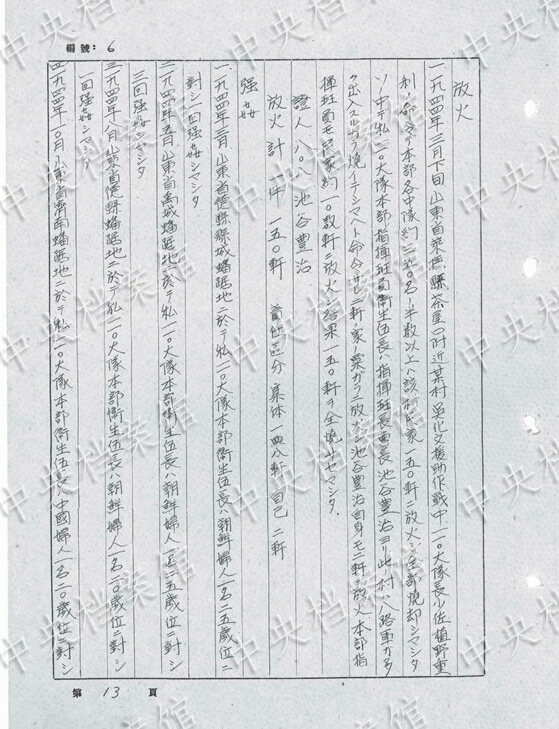 編號：6
放火
一、一九四四年三月下旬山東省莱蕪縣茶屋口附近某村 呉化文援助作戦中一一〇大隊長少佐植野重
利ノ命令デ本部各中隊約三五〇名ノ半数以上ハ該村民家一五〇軒ニ放火シ全部焼却シマシタ
ソノ中デ私一一〇大隊本部指揮班員衛生伍長ハ指揮班長曹長池谷豊治ヨリ此村ハ八路軍ガ多
ク出入スルカラ焼イテシマヘト命令サレ二軒ノ家ノ粟ガラニ放火シ池谷豊治自身モ二軒ニ放火本部指
揮班員モ民家約一〇数軒ニ放火シ結果一五〇軒ヲ全焼サセマシタ、
證人 八〇八 池谷豊治
放火計 一件 一五〇軒 責任区分 集体 一四八軒 自己 二軒
强姦
一、一九四四年三月 山東省德縣縣城蟠踞地ニ於テ私一一〇大隊本部衛生伍長ハ朝鮮婦人一名二五歳位ニ
對シ一回强姦シマシタ
二、一九四四年五月 山東省禹城蟠踞地ニ於テ私一一〇大隊本部衛生伍長ハ朝鮮婦人一名二五歳位ニ對シ
三回强姦シマシタ
三、一九四四年八月 山東省德縣蟠踞地ニ於テ私一一〇大隊本部衛生伍長ハ朝鮮婦人一名二〇歳位ニ對シ
一回强姦シマシタ
四、一九四四年一〇月 山東省濟南蟠踞地ニ於テ私一一〇大隊本部衛生伍長ハ中國婦人一名二〇歳位ニ對シ
第 13 頁
中央档案馆